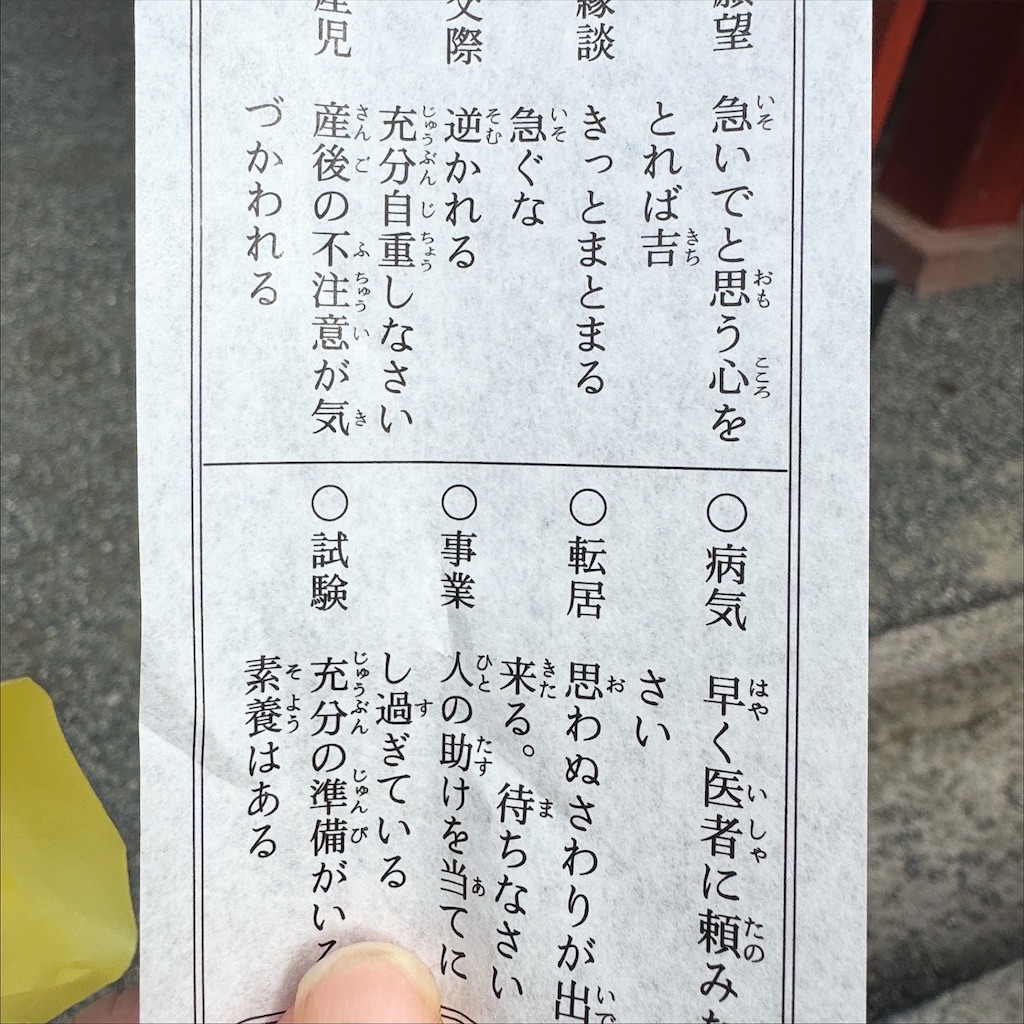 願望 急いでと思う心を
とれば吉
縁談 きっとまとまる
急ぐな
交際 逆かれる
充分自重しなさい
産児 産後の不注意が気
づかわれる
○病気 早く医者に頼みな
さい
○転居 思わぬさわりが出
来る。待ちなさい
○事業 人の助けを当てに
し過ぎている
○試験 充分の準備がいる
素養はある